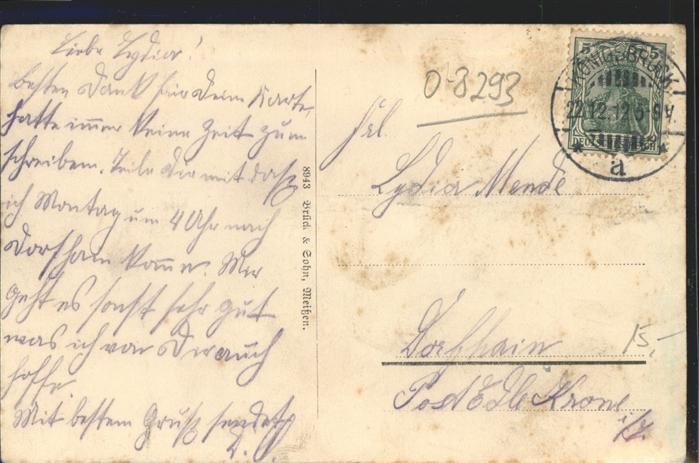 Liebe Lydia!
besten Dank für Deine Karte,
hatte immer keine Zeit zum
schreiben. Teile Dir mit daß
ich Montag um 4 Uhr nach
Dorfhain komme. Mir
geht es sonst sehr gut
was ich von Dir auch
hoffe.
Mit bestem Gruß sendet
8943 Brück & Sohn, Meißen.
0-8293
KÖNIGSBRÜCK
22.12.12.5-6N.
* a *
5 5
DEUTSCHES REICH
Frl.
Lydia Mende
Dorfhain
15,-
Post Edle Krone
i/S.